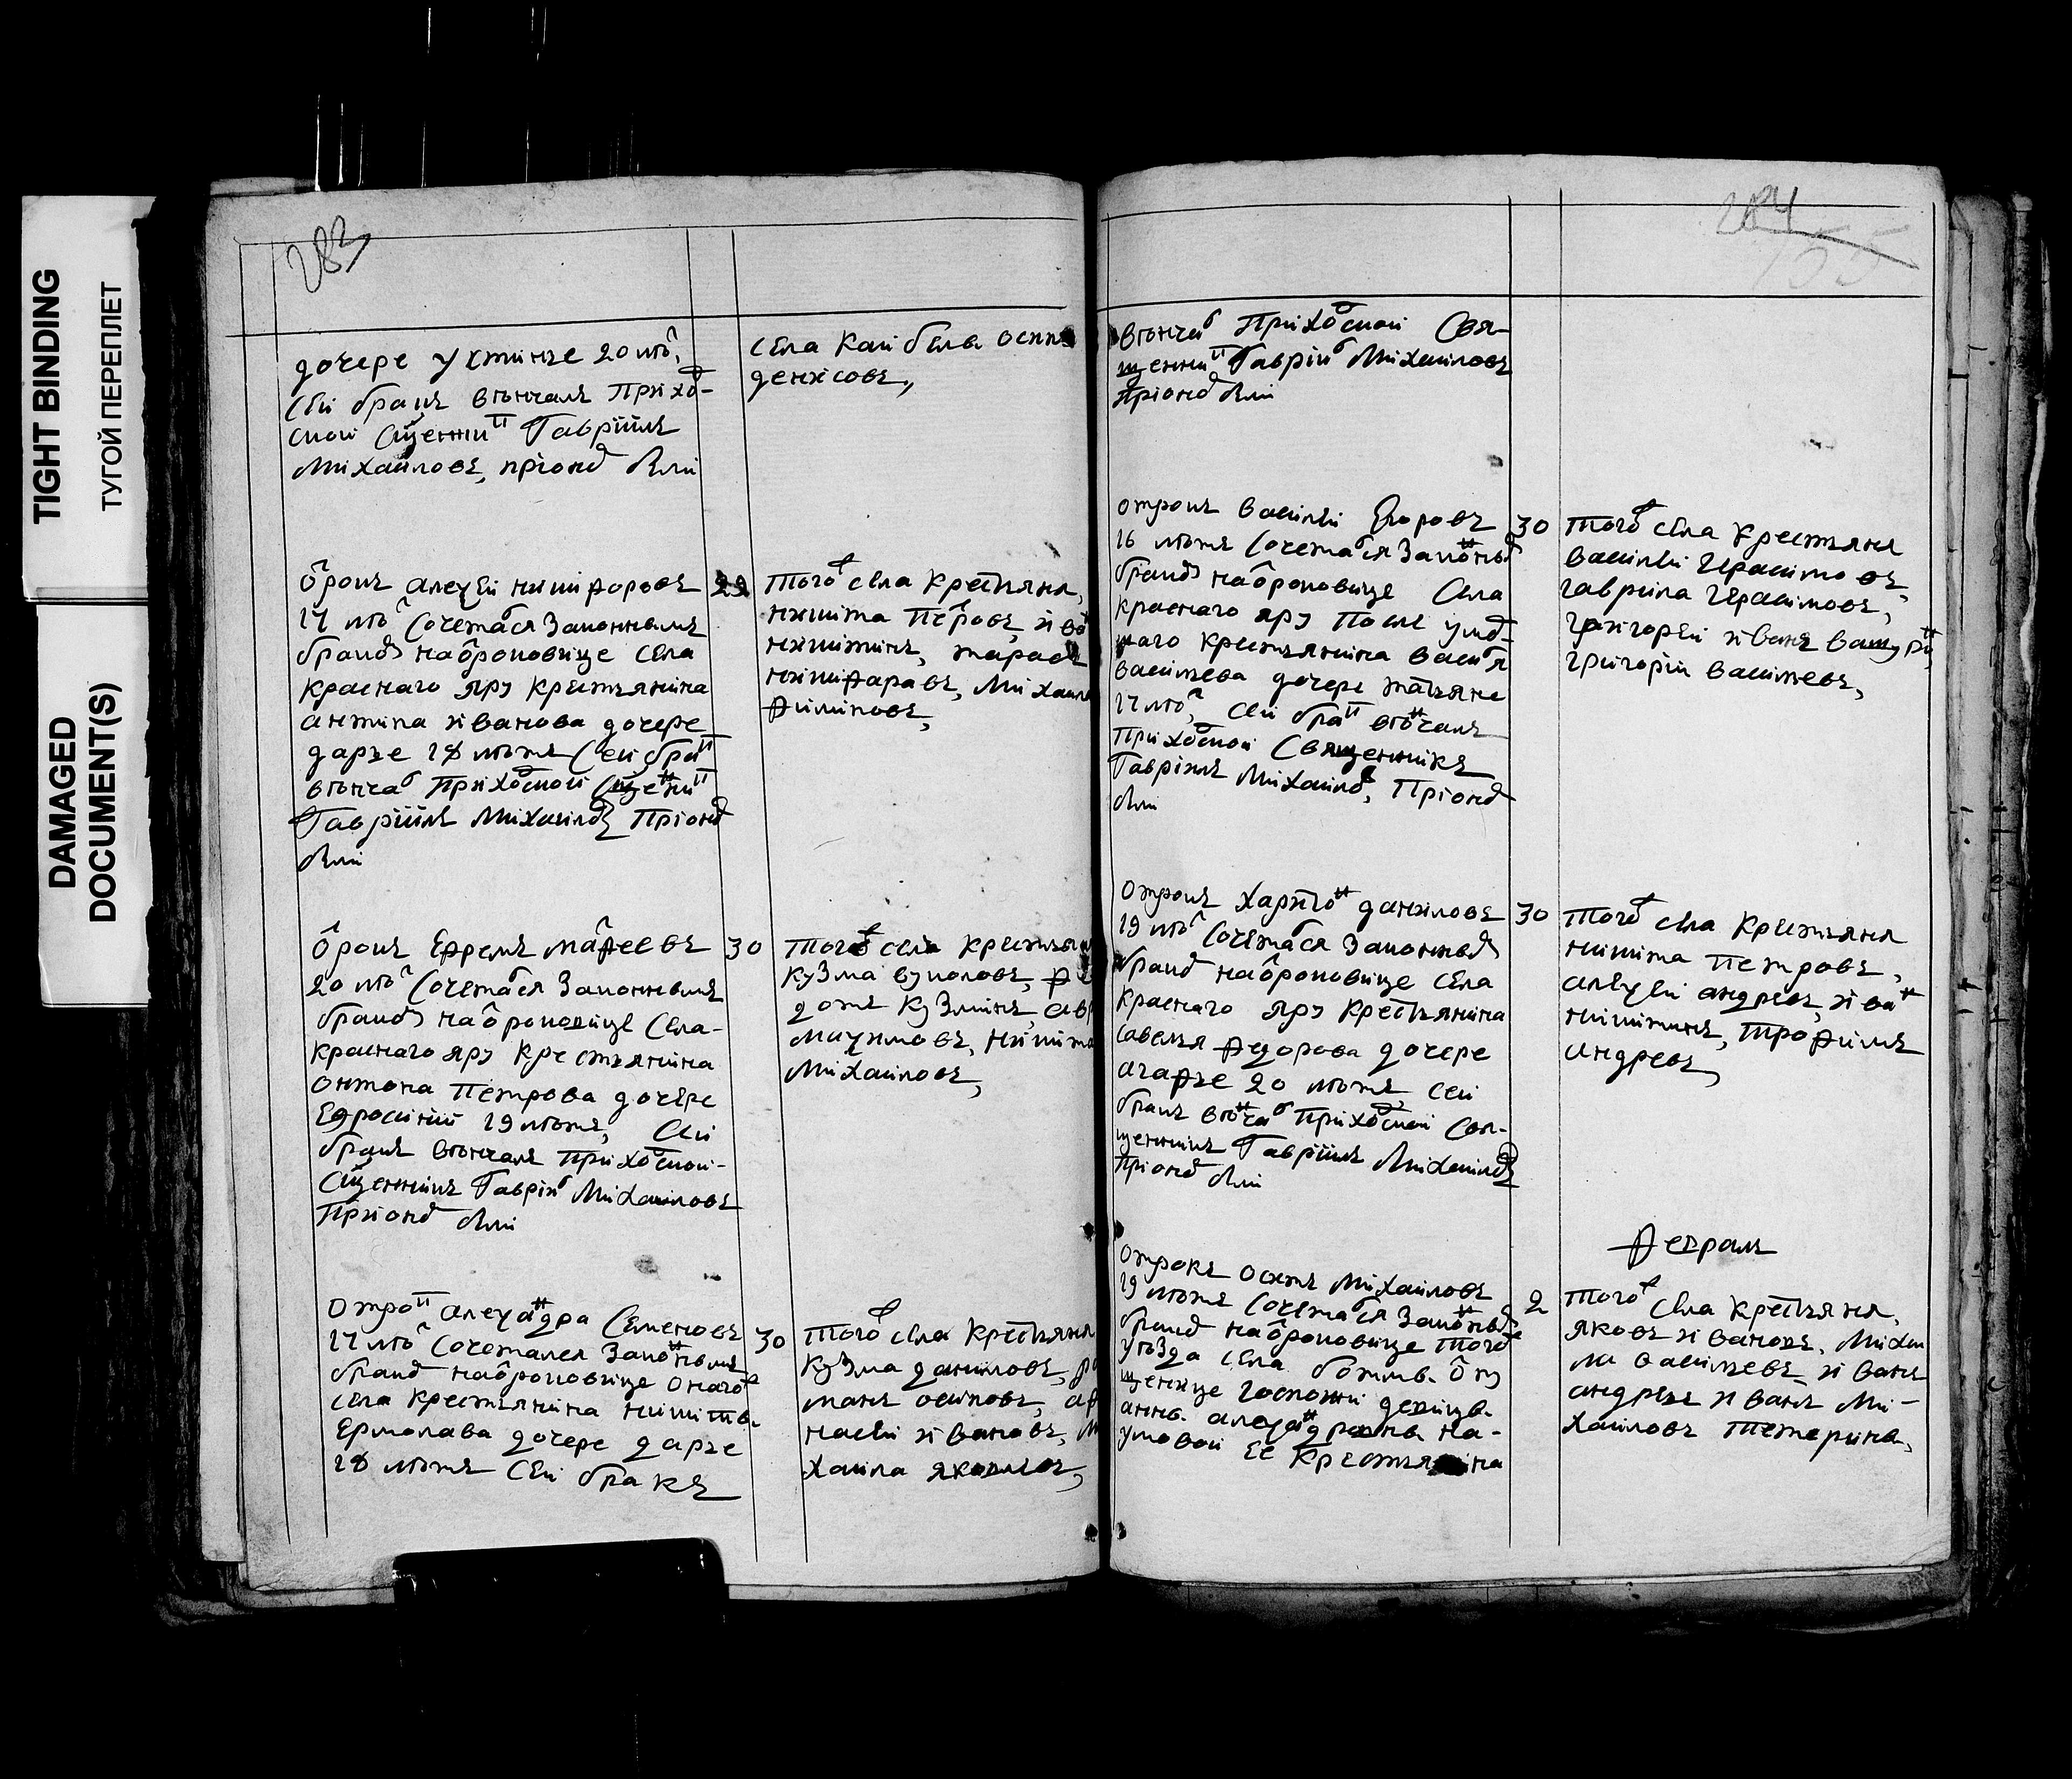 TIGHT BINDING
ТУГОЙ ПЕРЕПЛЕТ
DAMAGED
DOCUMENT(S)
283
дочере устинье 20 лѣ,
Сеи бракъ вѣнчалъ Прихо-
скои Сщенни Гавріилъ
Михаиловъ,
села
денисовъ,
ѻрокъ алеѯеи никифоровъ
17 лѣ Сочетася Законнымъ
бракō наѻроковице села
краснаго яру крестьянина
антипа иванова дочере
дарье 18 лѣтъ Сеи бра
вѣнча Прихоскои Сщени
Гавріилъ Михаилō
29
того села крестьяня,
никита Петровъ, ива
никитинъ, тарас
никифаравъ, Михаил
филиповъ,
ѻрокъ Ефремъ матфеевъ
20 лѣ Сочетася Законнымъ
бракō наѻроковице Села-
краснаго яру крестьянина
антона Петрова дочере
Ефросинии 19 лѣтъ, Сеи
бракъ вѣнчалъ Прихоскои-
Сщенникъ Гаврии Михаиловъ
30
того села крестьян
кузма вуколовъ, фе
дотъ кузминъ, авр
маѯимовъ, никита
Михаиловъ,
отро алеѯадра Семеновъ
17 лѣ Сочетался Законнымъ
бракō наѻроковице онаго
села крестьянина никиты
Ермолава дочере дарье
18 лѣтъ Сеи бракъ
30
того села крестьяня
кузма даниловъ, ро
манъ осиповъ, аф
насеи ивановъ, м
хаила яковлевъ,
284
155
вѣнча Прихоскои Свя-
щенни Гавріи Михаиловъ
отрокъ Василеи Егоровъ
16 лѣтъ Сочетася Законны
бракō наѻроковице Села
краснаго яру После умо-
шаго крестьянина васи
васильева дочере татьяне
17 лѣ, Сеи бра вѣчалъ
Прихоскои Священникъ
Гавріилъ Михаилō,
30
того села крестьяня
василеи герасимовъ,
гаврила герасимовъ,
григореи иванъ
григории васильевъ,
отрокъ харито даниловъ
19 лѣ Сочетася Законнымъ
бракō наѻроковице села
краснаго яру крестьянина
савелья федорова дочере
агафье 20 лѣтъ Сеи
бракъ вѣча Прихоскои Свя-
щенникъ Гавріилъ Михаилō
30
того села крестьяня
никита петровъ,
алеѯеи андревъ, ива
никитинъ, трофимъ
андревъ,
февраль
отрокъ осипъ Михаиловъ
19 лѣтъ Сочетася Законны
бракō наѻроковице того
уѣзда села
щенице госпожи девицы
анны алеѯадровны На-
умовои Ее крестьянина
2
того села крестьяня,
яковъ ивановъ, Михаи
ла васильевъ, иванъ
андревъ иванъ Ми-
хаиловъ тетерины,